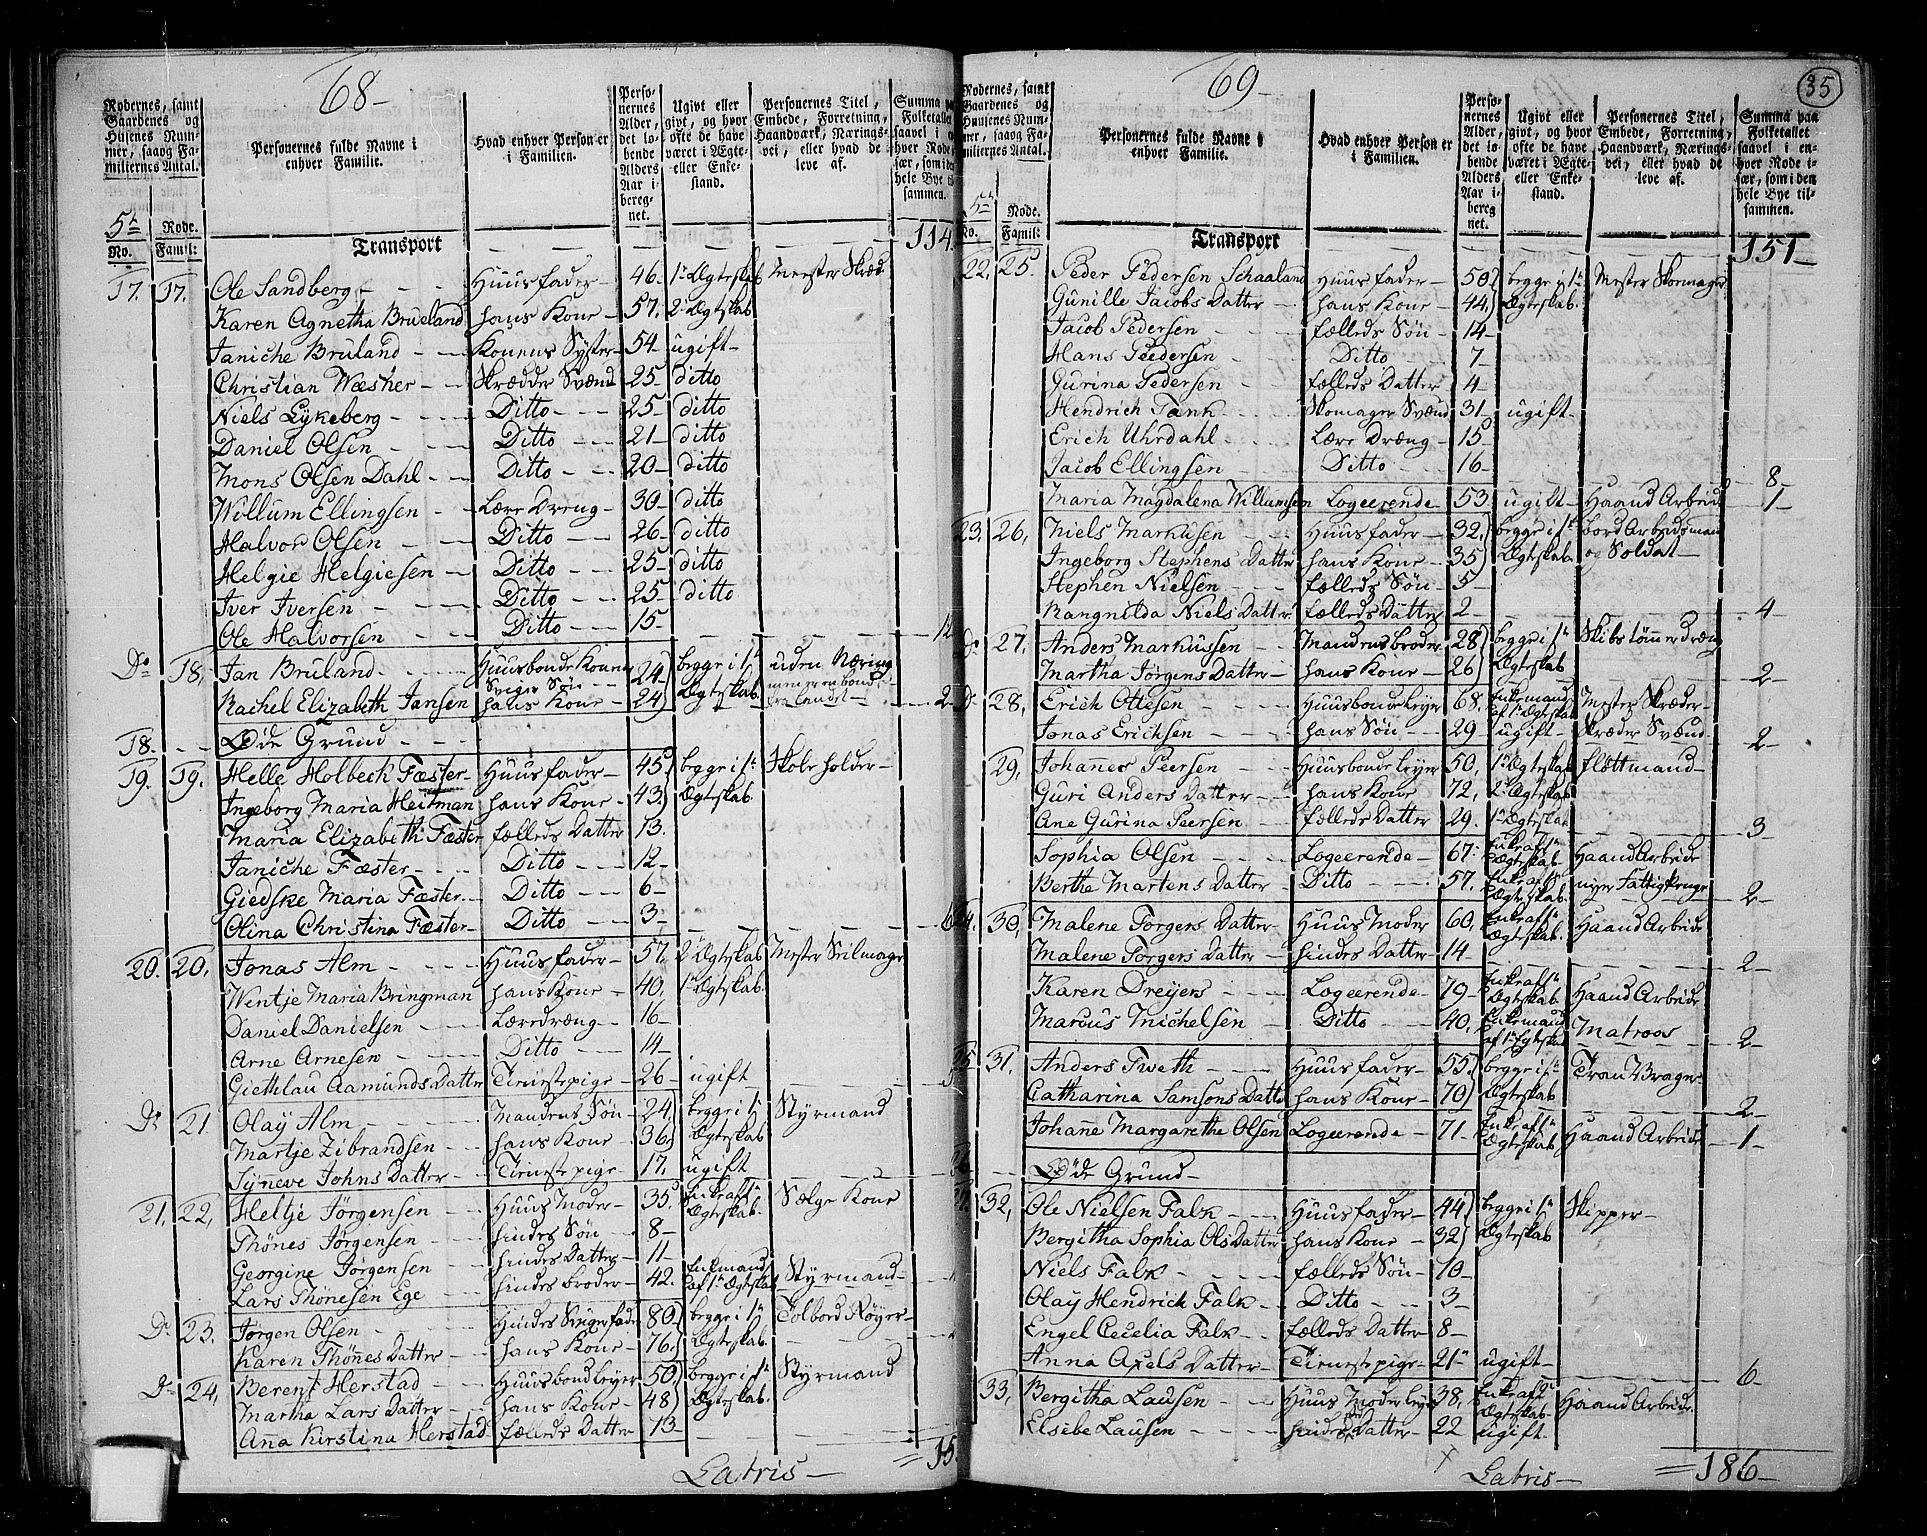 68
Rodernes, samt Gaardenes og Husenes Nummer, saaog Familiernes Antal.
Personernes fulde Navne i enhver Familie.
Hvad enhver Person er i Familien.
Personernes Alder, det løbende Alders Aar iberegnet.
Ugivt eller givt, og hvor ofte de have været i Ægte- eller Enkestand.
Personernes Titel, Embede, Forretning, Haandværk, Næringsvei, eller hvad de leve af.
5te Rode.
No. Famil:
Transport 114
17. 17. Ole Sandberg Huusfader 46 1te Ægteskab Mester Skræd
Karen Agnetha Brueland hans Kone 57 2de Ægtskab
Janiche Bruland Konens Syster 54 ugift
Christian Wæsher Skrædder Svænd 25 ditto
Niels Lykeberg Ditto 25 ditto
Daniel Olsen Ditto 21 ditto
Mons Olsen Dahl Ditto 20 ditto
Willum Ellingsen Lære Dreng 30 ditto
Halvor Olsen Ditto 26 ditto
Helgie Helgiesen Ditto 25 ditto
Iver Iversen Ditto 25 ditto
Ole Halvorsen Ditto 15 12
Do 18. Jan Bruland Huusbonde Konens Sviger Søn 24 begge i 1te uden Næring
Rachel Elizabeth Jansen hans Kone 24 Ægteskab 2
18. Øde Grund
19. 19. Helle Holbech Fæster Huusfader 45 begge i 1te Skoleholder
Ingeborg Maria Heitman hans Kone 43 Ægteskab
Maria Elizabeth Fæster fælleds Datter 13
Janiche Fæster Ditto 12
Giedske Maria Fæster Ditto 6
Olina Christina Fæster Ditto 3 6
20. 20. Jonas Alm Huusfader 57 2de Ægteskab Mester Seilmager
Wentje Maria Bringman hans Kone 40 1te Ægteskab
Daniel Danielsen Læredræng 16
Arne Arnesen Ditto 14
Giethlau Aamunds Datter Tienestepige 26 ugift 5
Do 21 Olay Alm Mandens Søn 24 begge i 1te Styrmand
Martje Zibrandsen hans Kone 36 Ægteskab
Syneve Johns Datter Tienestepige 17 ugift
21. 22. Heltje Jørgensen Huus Moder 35 Enke af 1te Ægteskab Sælge Kone
Thønes Jørgensen hindes Søn 8
Georgine Jørgensen hindes Datter 11
Lars Thønesen Ege hindes broder 42 Enkemand af 1te Ægteskab Styrmand
Do 23. Jørgen Olsen hindes Svigerfader 80 begge i 1te Tolbord Røyer
Karen Thønes Datter hans Kone 76 Ægteskab
Do 24. Berent Herstad Huusbond leyer 50 begge i 1te Styrmand
Martha Lars Datter hans Kone 48 Ægteskab
Anna Kirstina Herstad fælleds Datter 13
Latris = 15
69
35
Rodernes, samt Gaardenes og Husenes Nummer, saaog Familiernes Antal.
Personernes fulde Navne i enhver Familie.
Hvad enhver Person er i Familien.
Personernes Alder, det løbende Alders Aar iberegnet.
Ugivt eller givt, og hvor ofte de have været i Ægte- eller Enkestand.
Personernes Titel, Embede, Forretning, Haandværk, Næringsvei, eller hvad de leve af.
Summa paa Folketallet saavel i enhver Rode især, som i den hele Bye tilsammen.
5te Rode.
No. Famil:
Transport 151
22. 25. Peder Pedersen Schaaland Huusfader 50 begge i 1te Mester Skomager
Gunille Jacobs Datter hans Kone 44 Ægteskab
Jacob Pedersen fælleds Søn 14
Hans Peedersen Ditto 7
Gurina Pedersen fælleds Datter 4
Hendrich Tank Skomager Svænd 31 ugift
Erich Uhrdahl Lære Dræng 15
Jacob Ellingsen Ditto 16 8
Maria Magdalena Willumsen Logeerende 53 ugift Haand Arbeid 1
23. 26. Niels Markusen Huusfader 32 begge i 1te bord Arbeidsmand
Ingeborg Stephens Datter hans Kone 35 Ægteskab og Soldat
Stephen Nielsen fælleds Søn 5
Rangnilda Niels Datter fælleds Datter 2 4
Do 27. Anders Markussen Mandens broder 28 begge i 1te Skibstømmerdræng
Martha Jørgens Datter hans Kone 26 Ægteskab 2
Do 28. Erich Ottesen Huusbonde leyer 68 Enkemand af 1te Ægteskab Mester Skræder
Jonas Erichsen hans Søn 29 ugift Skræder Svænd 2
29. Johannes Peersen Huusbonde leyer 50 1te Ægteskab fløttmand
Guri Anders Datter hans Kone 72 2de Ægteskab
Ane Gurina Peersen fælleds Datter 29 1te Ægteskab 3
Sophia Olsen Logeerende 67 Enke af 1te Ægteskab Haand Arbeide
Berthe Martens Datter Ditto 57 Enke af Ægteskab nyer Fattigpenge 2
24. 30. Malene Torgers Datter Huus Moder 60 Enke af 1te Ægteskab Haand Arbeide
Malene Torgers Datter hindes Datter 14 2
Karen Dreyers Logeerende 79 Enke af 1te Ægteskab Haand Arbeide
Marcus Michelsen Ditto 40 Enkemand af 1te Egteskab Matroos 2
25. 31. Anders Tweth Huusfader 55 begge i 1te Tran Brager
Catharina Samsons Datter hans Kone 70 Ægteskab 2
Johanne Margarethe Olsen Logeerende 71 Enke af 1te Ægteskab Haand Arbeide 1
26. Øde Grund
27. 32. Ole Nielsen Falk Huusfader 44 begge i 1te Skipper
Bergitha Sophia Ols Datter hans Kone 32 Ægteskab
Niels Falk fælleds Søn 10
Olay Hendrich Falk Ditto 3
Engel Cecelia Falk fælleds Datter 8
Anna Axels Datter Tienestepige 21 ugift 6
33. Bergitha Lausen Huus Moder leyer 38 Enke af Ægteskab Haand Arbeide
Elsebe Lausen hindes Datter 22 ugift
Latris = 186